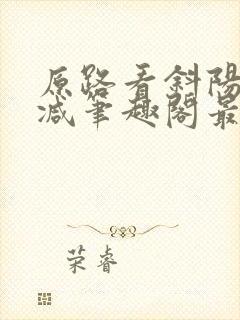 原路看斜陽
减筆趣閣最
荣睿